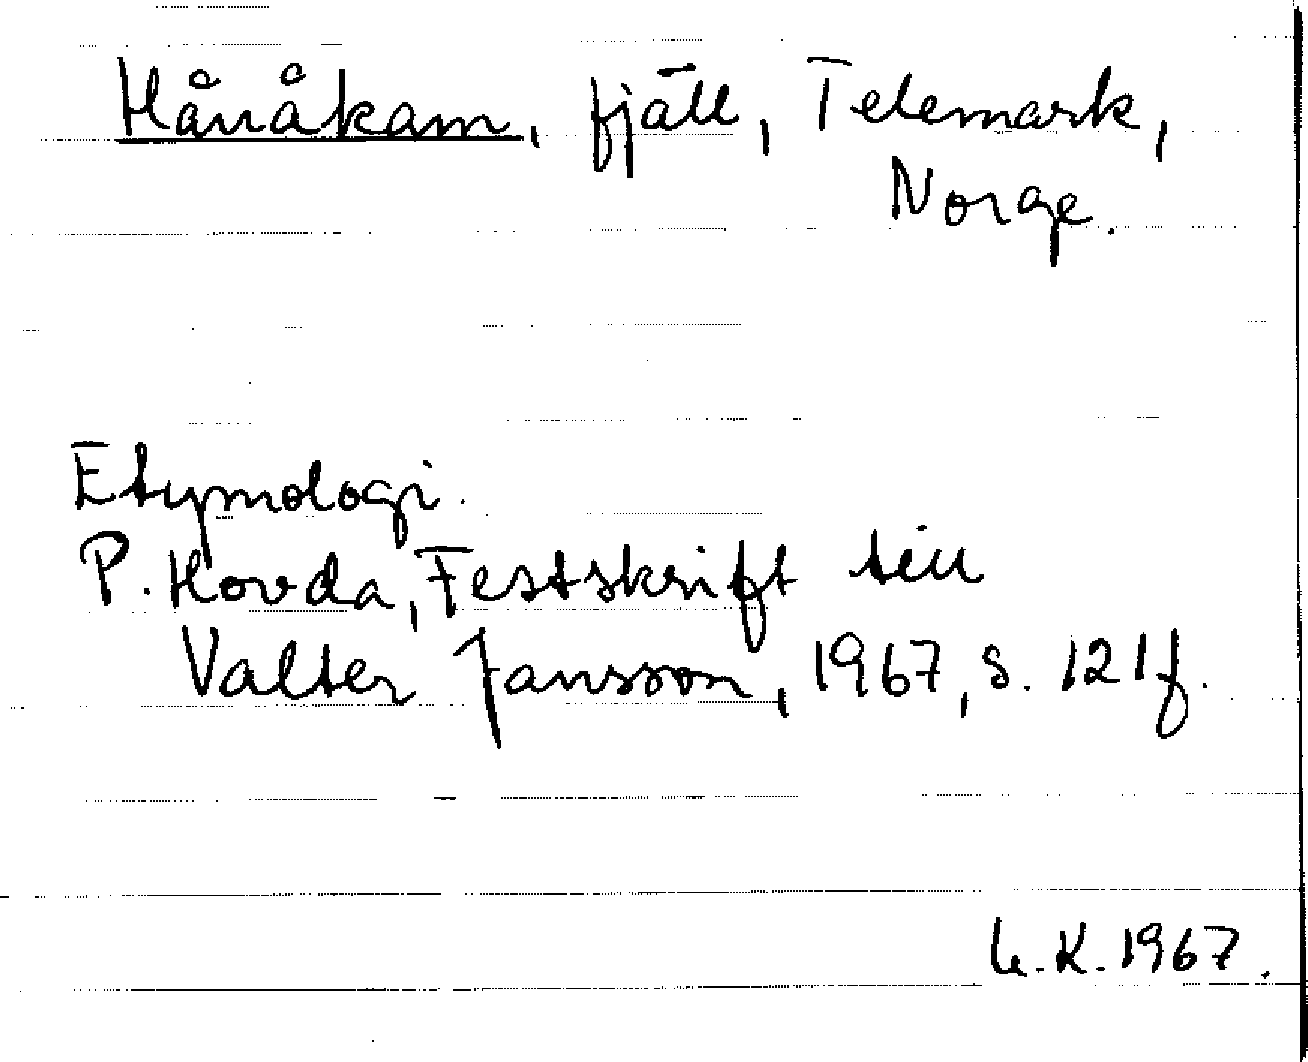 Hånåkam, fjäll, Telemark,
Norge.
Etymologi.
P. Hovda, Festskrift till
Valter Jansson, 1967, s. 121f.
K. 1967.